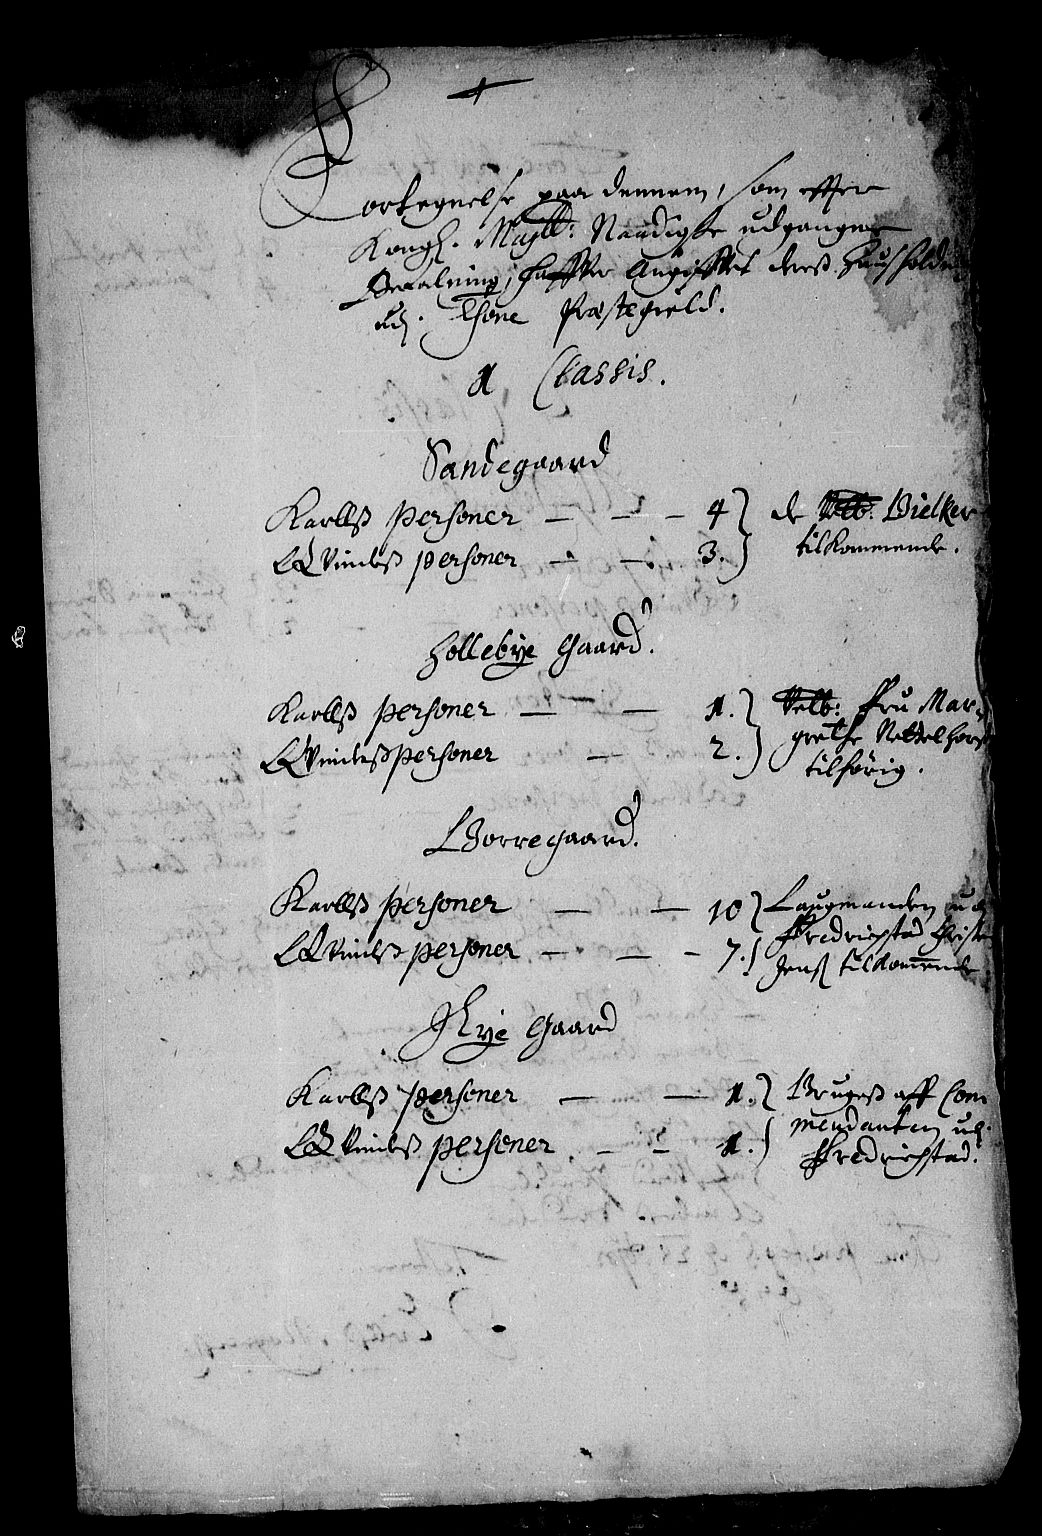 Fortegnelse paa dennem, som effter
Kongl. Maÿtt: Naadigste udgangne
Befalning, haffver Angifftet deres Hussholdn
udj. Thune Præstegield.
1 Classis.
Sandegaard
Karllss Personer — — — 4 de Velb: Bielker
QVindess personer — — 3. tilkommende.
Hollebÿe Gaard.
Karllss Personer — — 1. Velb: Fru Mar-
QVindess personer — 2. grethe Nettelhorst
tilhörig.
Borregaard.
Karllss Personer — — 10 Laugmanden udj
QVindess personer — — — 7. Fredrichstad Christen
Jenss tilkommende
Rÿe Gaard
Karllss personer — — 1. Bruges aff Com
QVindess personer — — 1. mendanten udj.
Fredrichstad.